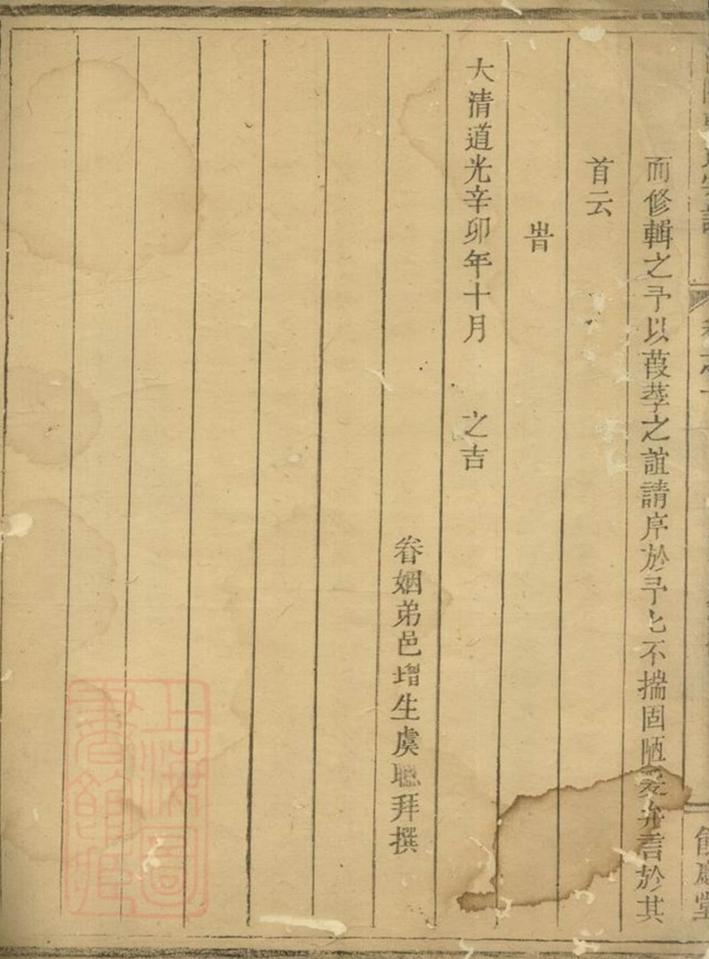 而修輯之予以葭莩之誼請序於予匕不揣固陋爰弁言於其
首云
旹
大清道光辛卯年十月 之吉
眷姻弟邑增生虞聰拜撰
卷之一
餘慶堂
上海圖書館藏